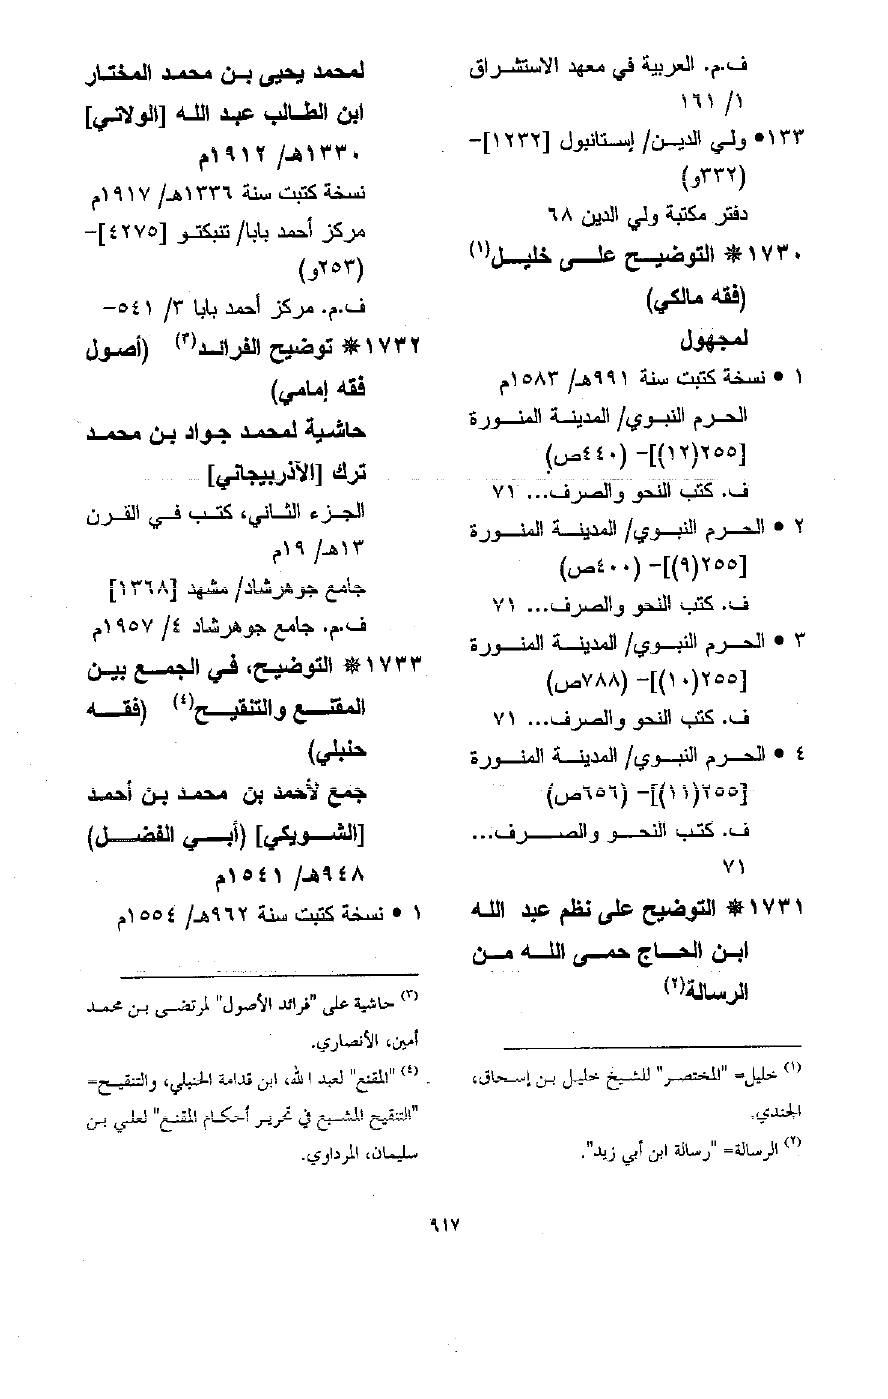 ف.م. العربية في معهد الاستشراق
١/ ١٦١
١٣٣• ولي الدين/ إستانبول [١٢٣٢]-
(٣٣٢و)
دفتر مكتبة ولي الدين ٦٨
١٧٣٠* التوضيح على خليل(١)
(فقه مالكي)
لمجهول
١ • نسخة كتبت سنة ٩٩١هـ/ ١٥٨٣م
الحرم النبوي/ المدينة المنورة
[٢٥٥(١٢)]- (٤٤٠ص)
ف. كتب النحو والصرف... ٧١
٢ • الحرم النبوي/ المدينة المنورة
[٢٥٥(٩)]- (٤٠٠ص)
ف. كتب النحو والصرف... ٧١
٣ • الحرم النبوي/ المدينة المنورة
[٢٥٥(١٠)]- (٧٨٨ص)
ف. كتب النحو والصرف... ٧١
٤ • الحرم النبوي/ المدينة المنورة
[٢٥٥(١١)]- (٦٥٦ص)
ف. كتب النحو والصرف...
٧١
١٧٣١* التوضيح على نظم عبد الله
ابن الحاج حمى الله من
الرسالة(٢)
(١) خليل= "المختصر" للشيخ خليل بن إسحاق،
الجندي.
(٢) الرسالة= "رسالة ابن أبي زيد".
لمحمد يحيى بن محمد المختار
ابن الطالب عبد الله [الولاتي]
١٣٣٠هـ/ ١٩١٢م
نسخة كتبت سنة ١٣٣٦هـ/ ١٩١٧م
مركز أحمد بابا/ تنبكتو [٤٢٧٥]-
(٢٥٣و)
ف.م. مركز أحمد بابا ٣/ ٥٤١-
١٧٣٢* توضيح الفرائد(٣) (أصول
فقه إمامي)
حاشية لمحمد جواد بن محمد
ترك [الآذربيجاني]
الجزء الثاني، كتب في القرن
١٣هـ/ ١٩م
جامع جوهرشاد/ مشهد [١٣٦٨]
ف.م. جامع جوهرشاد ٤/ ١٩٥٧م
١٧٣٣* التوضيح، في الجمع بين
المقنع والتنقيح(٤) (فقه
حنبلي)
جمع لأحمد بن محمد بن أحمد
[الشويكي] (أبي الفضل)
٩٤٨هـ/ ١٥٤١م
١ • نسخة كتبت سنة ٩٦٢هـ/ ١٥٥٤م
(٣) حاشية على "فرائد الأصول" لمرتضى بن محمد
أمين، الأنصاري.
(٤) "المقنع" لعبد الله، ابن قدامة الحنبلي، والتنقيح=
"التنقيح المشبع في تحرير أحكام المقنع" لعلي بن
سليمان، المرداوي.
٩١٧